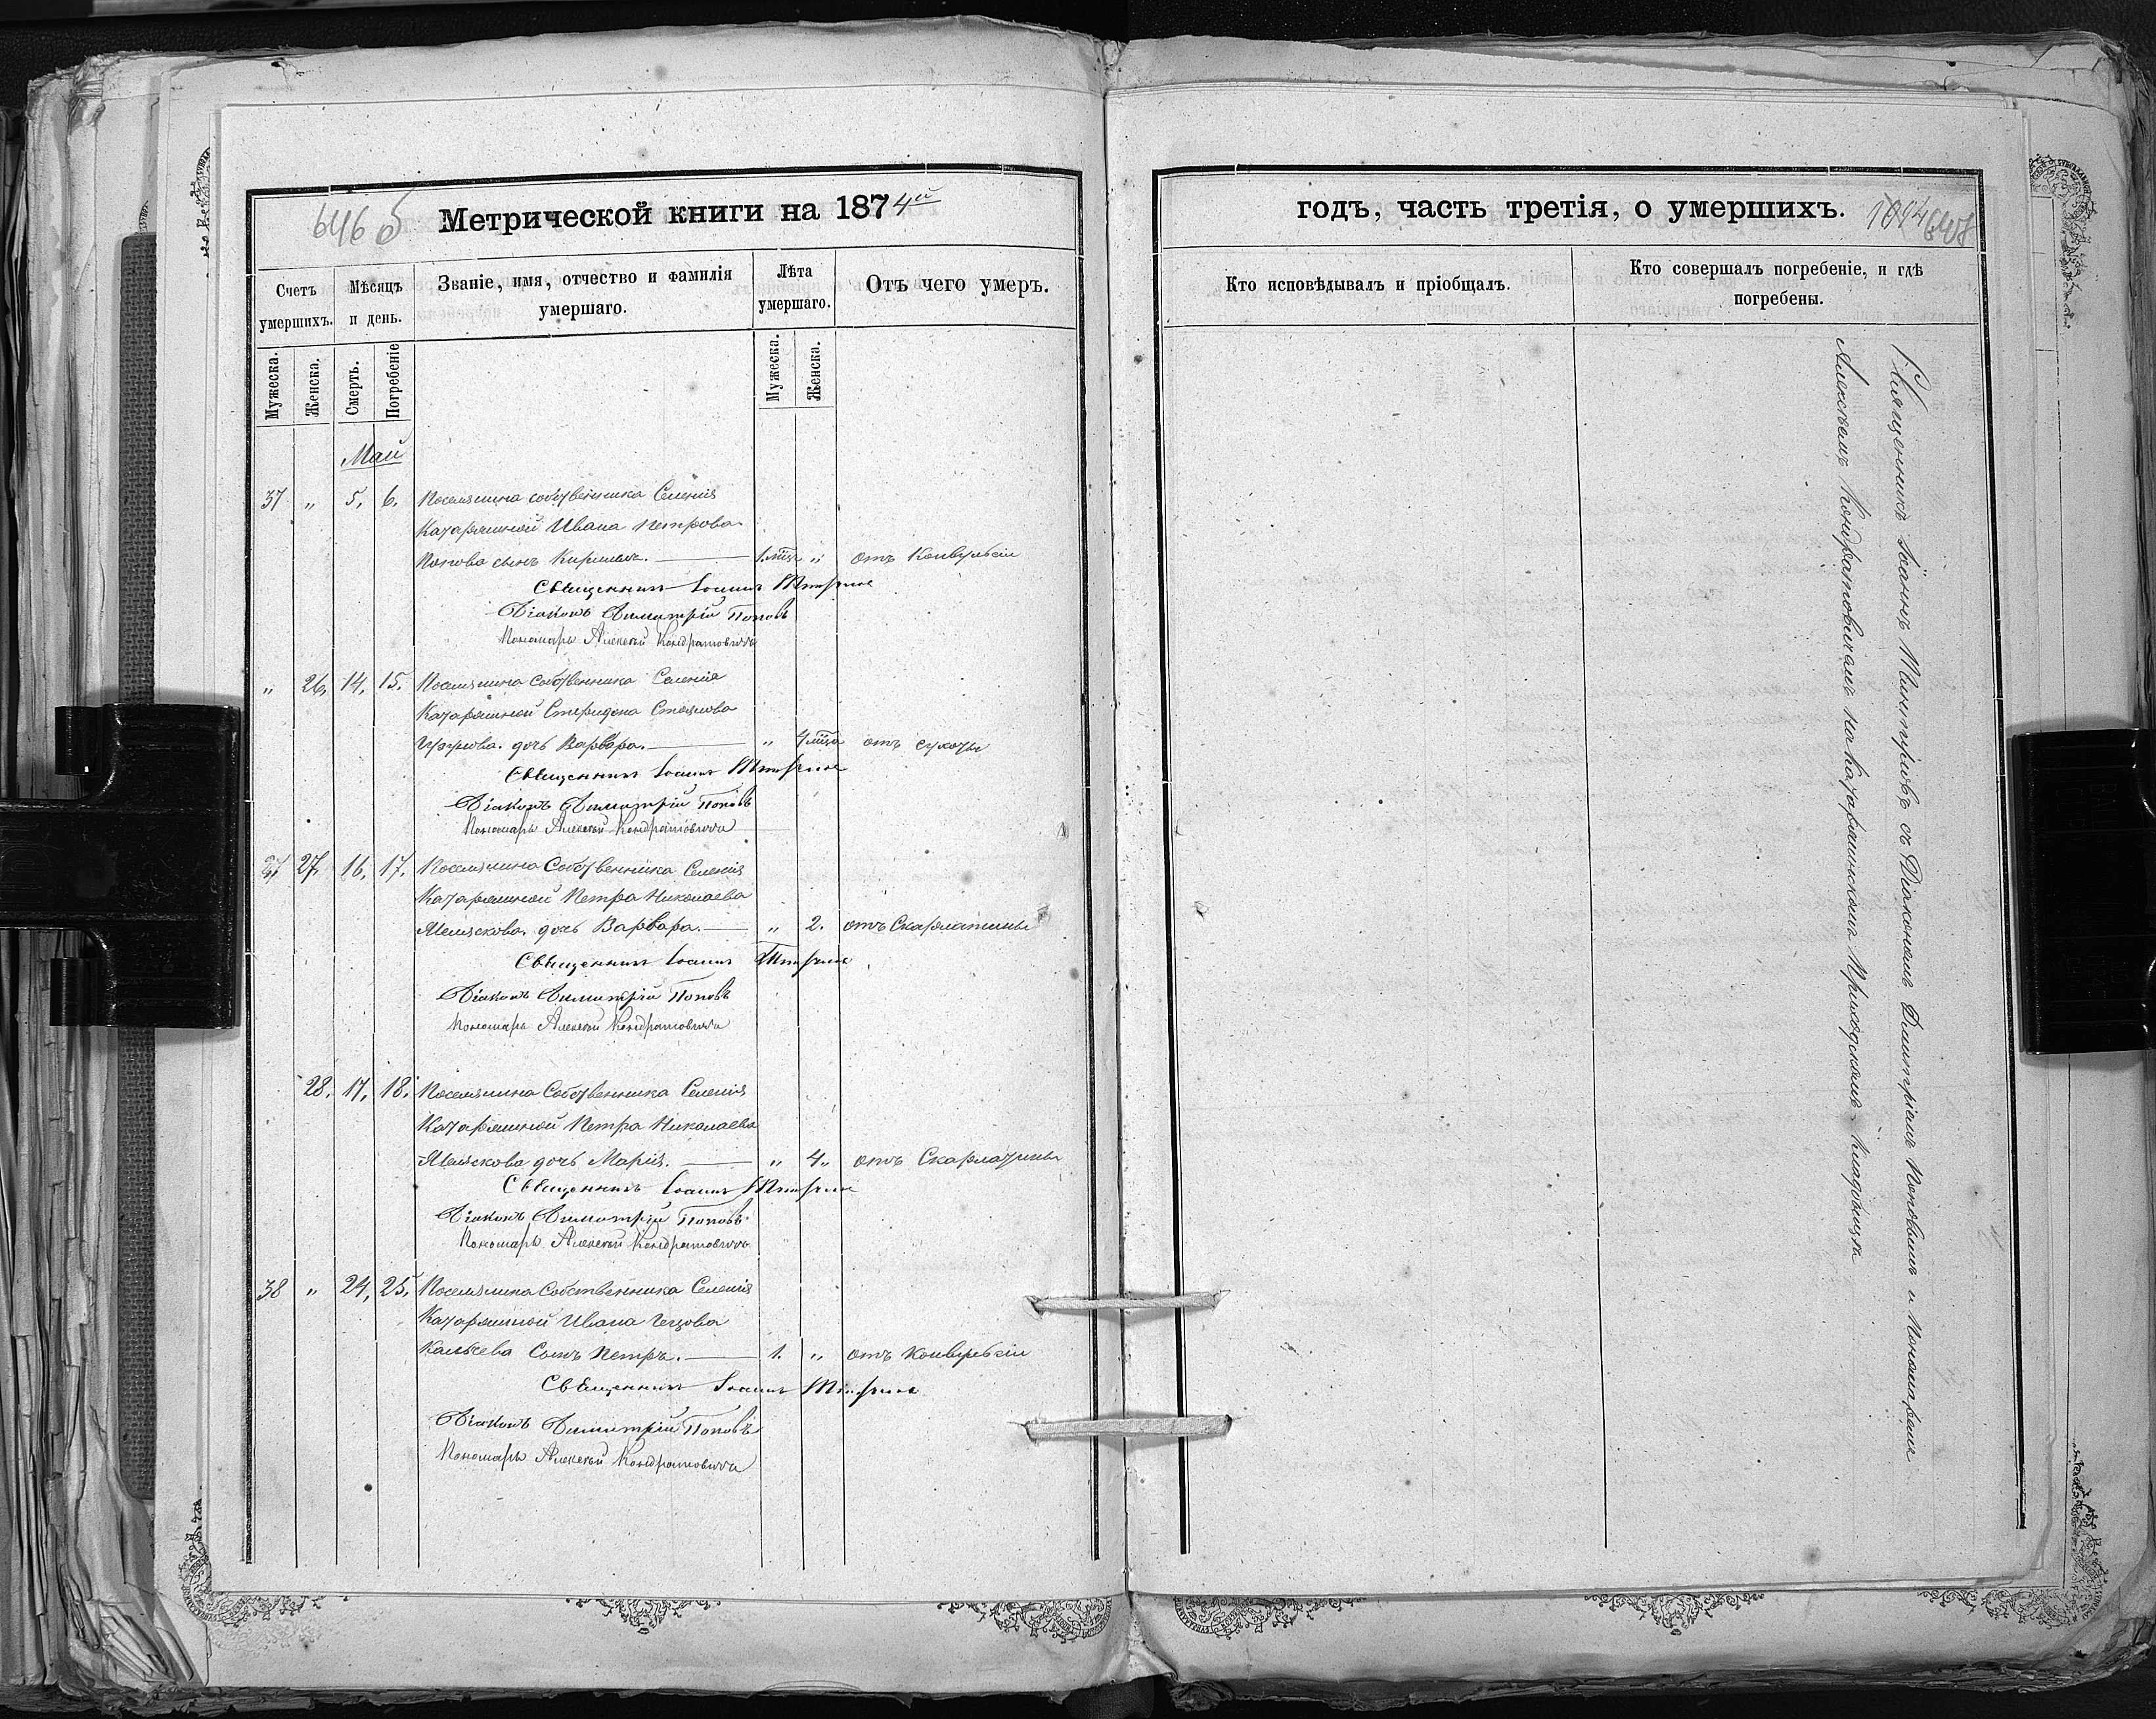 646 б
Метрической книги на 1874й
Счетъ умершихъ.
Мѣсяцъ и день.
Званіе, имя, отчество и фамилія умершаго.
Лѣта умершаго.
Отъ чего умеръ.
Мужеска.
Женска.
Смерть.
Погребеніе
Мужеска.
Женска.
Май
37 " 5, 6. Поселянина собственника Селенія
Катаржиной Ивана Петрова
Попова сынъ Кирилъ. 1 мца " отъ Конвульсіи
Священникъ Іоаннъ
Діаконъ Димитрій Поповъ
Пономарь Алексѣй Кондратовичъ
" 26, 14, 15. Поселянина Собственника Селенія
Катаржиной Спиридона Стоянова
дочь Варвара. " 4 мца отъ сухоты
Священникъ Іоаннъ
Діаконъ Димитрій Поповъ
Пономарь Алексѣй Кондратовичъ
27, 16, 17. Поселянина Собственника Селенія
Катаржиной Петра Николаева
дочь Варвара. " 2. отъ Скарлатины
Священникъ Іоаннъ
Діаконъ Димитрій Поповъ
Пономарь Алексѣй Кондратовичъ
28, 17, 18. Поселянина Собственника Селенія
Катаржиной Петра Николаева
дочь Марія. " 4 " отъ Скарлатины
Священникъ Іоаннъ
Діаконъ Димитрій Поповъ
Пономарь Алексѣй Кондратовичъ
38 " 24, 25, Поселянина Собственника Селенія
Катаржиной Ивана
Кальчева Сынъ Петръ. 1. " отъ Конвульсіи
Священникъ Іоаннъ
Діаконъ Димитрій Поповъ
Пономарь Алексѣй Кондратовичъ
годъ, часть третія, о умершихъ.
Кто исповѣдывалъ и пріобщалъ.
Кто совершалъ погребеніе, и гдѣ погребены.
Священникъ Іоаннъ съ Діакономъ Димитріемъ Поповымъ и Пономаремъ
Алексѣемъ Кондратовичемъ на Катаржинскомъ Приходскомъ Кладбищѣ